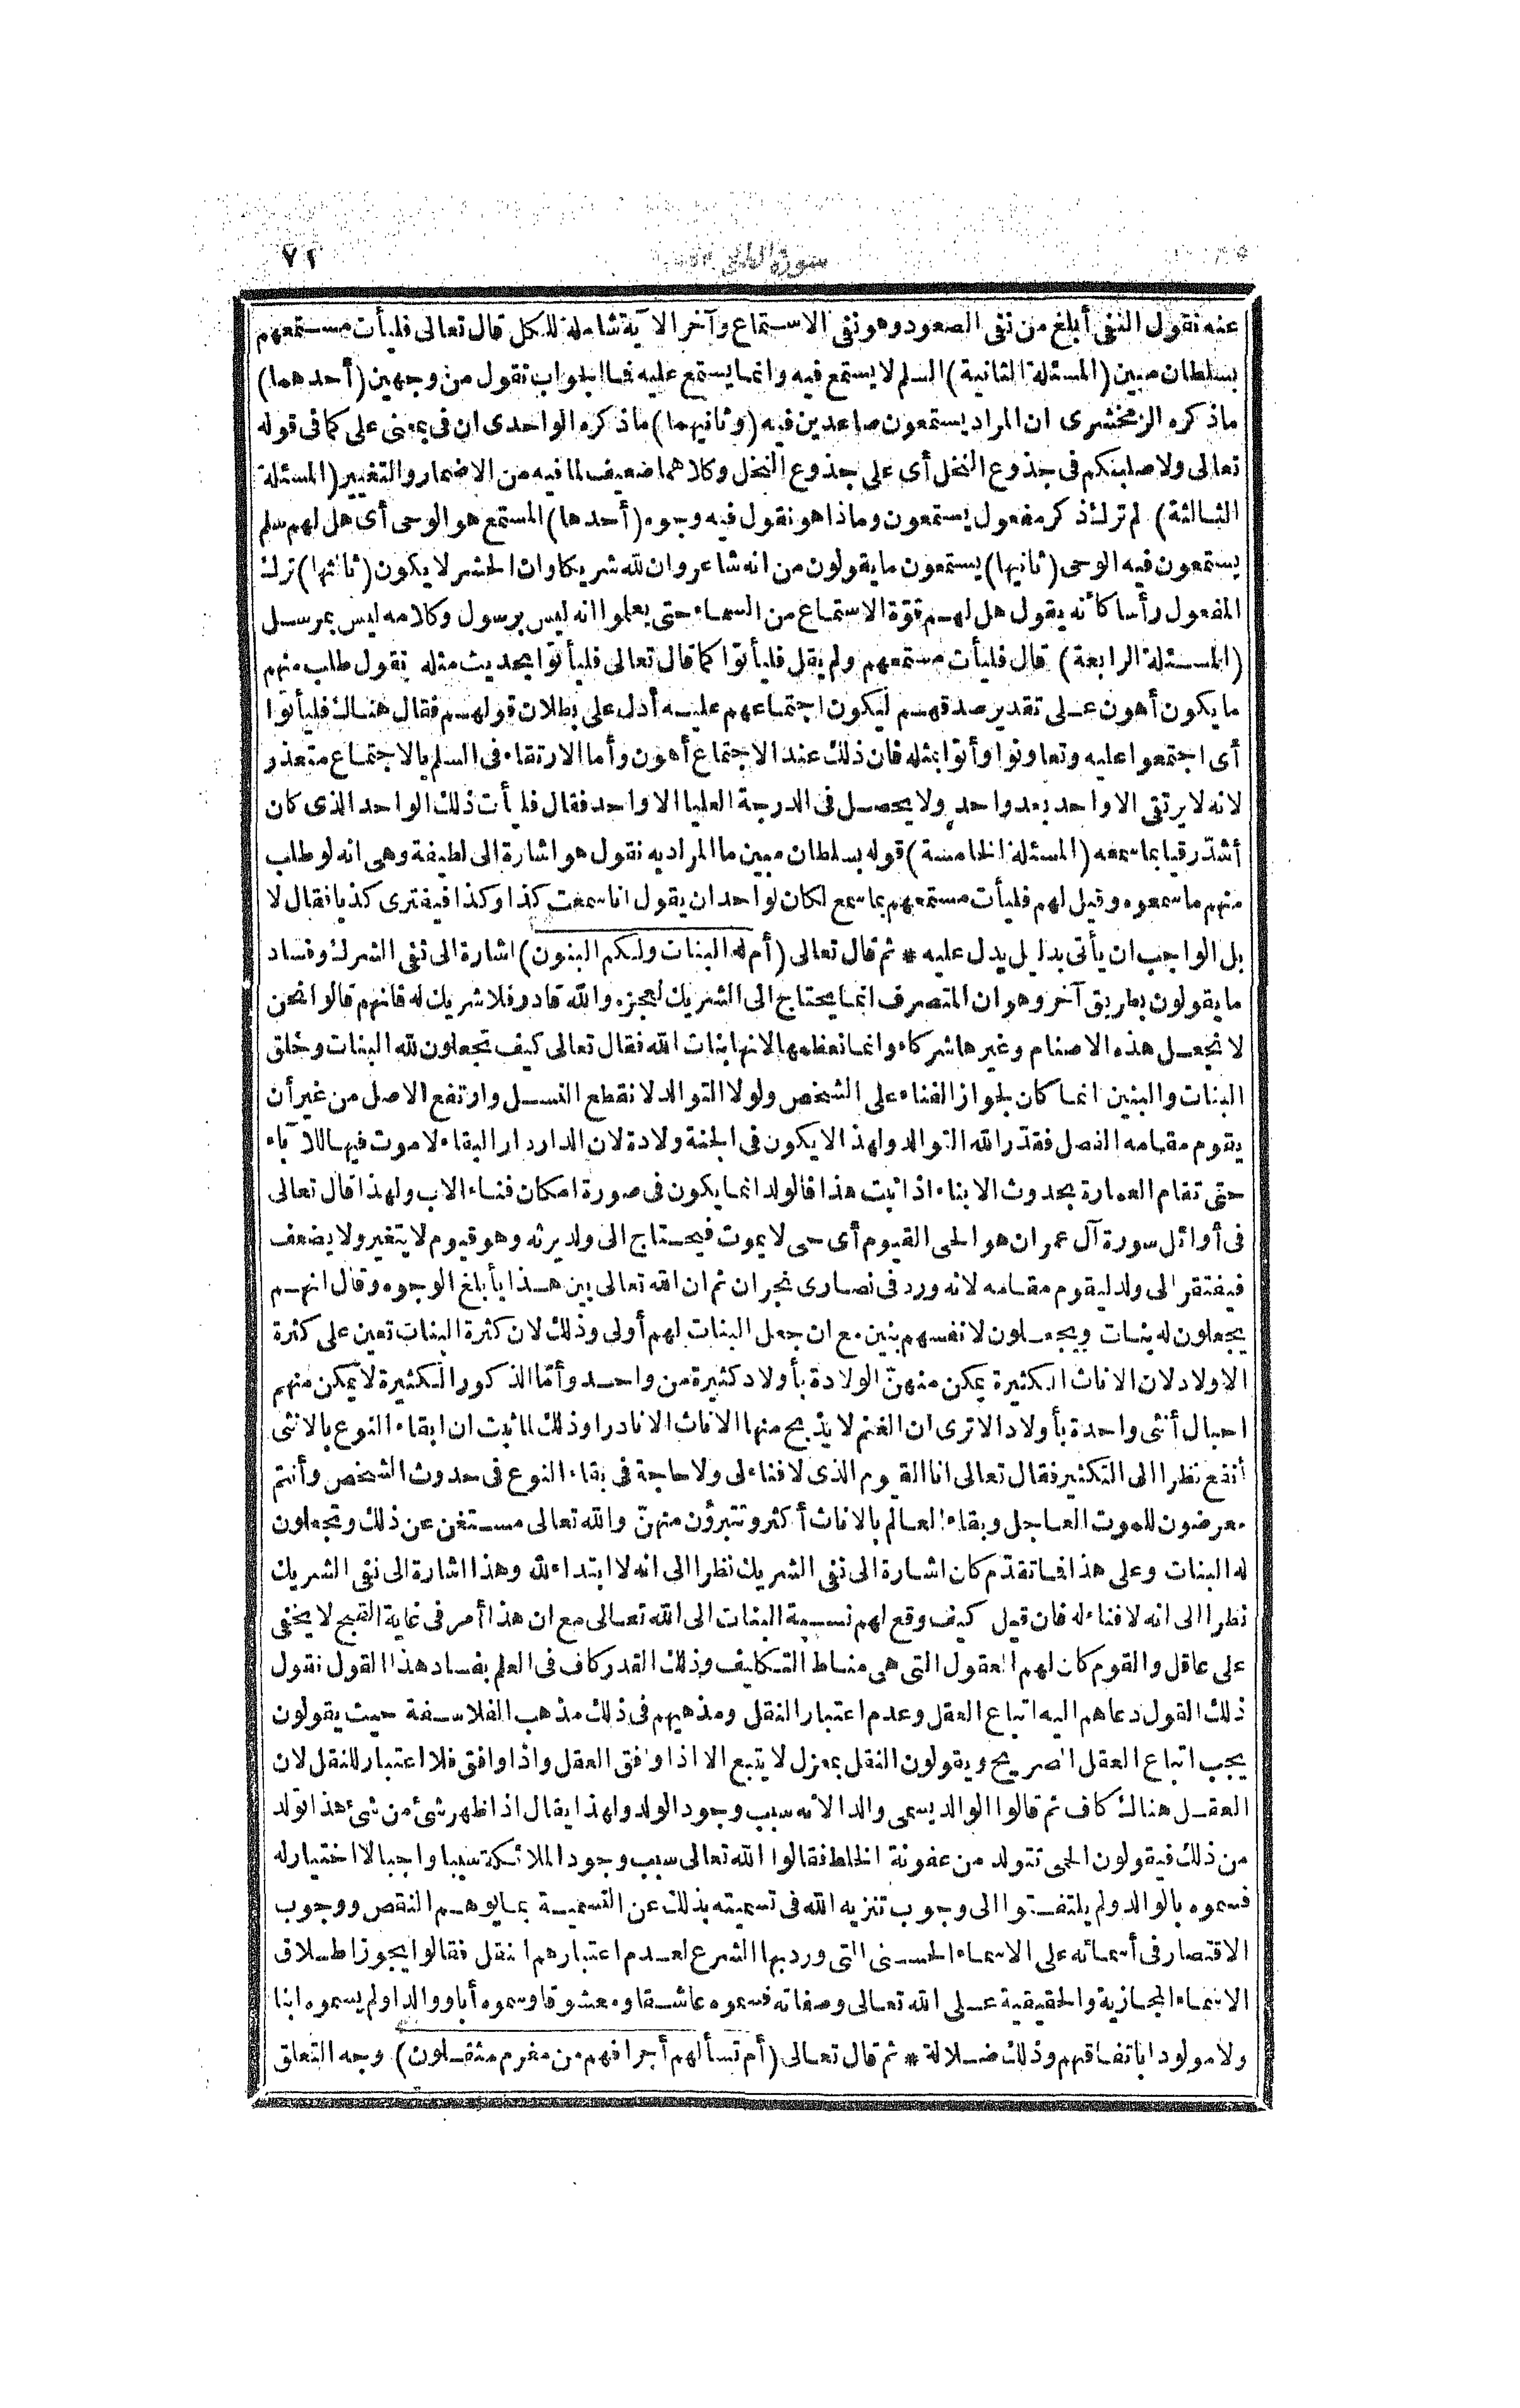 ٧٢
عنه نقول النفى أبلغ من نفى الصعود وهو نفى الاستماع وآخر الآية شاملة للكل قال تعالى فليأت مستمعهم
بسلطان مبين (المسئلة الثانية) السلم لا يستمع فيه وانما يستمع عليه فما الجواب نقول من وجهين (أحدهما)
ماذكره الزمخشرى ان المراد يستمعون صاعدين فيه (وثانيهما) ماذكره الواحدى ان فى بمعنى على كما فى قوله
تعالى ولاصلبنكم فى جذوع النخل أى على جذوع النخل وكلاهما ضعيف لما فيه من الاضمار والتغيير (المسئلة
الثالثة) لم ترك ذكر مفعول يستمعون وماذا هو نقول فيه وجوه (أحدها) المستمع هو الوحى أى هل لهم سلم
يستمعون فيه الوحى (ثانيها) يستمعون ما يقولون من انه شاعر وان لله شريكا وان الحشر لا يكون (ثالثها) ترك
المفعول رأسا كأنه يقول هل لهم قوّة الاستماع من السماء حتى يعلموا انه ليس برسول وكلامه ليس بمرسل
(المسئلة الرابعة) قال فليأت مستمعهم ولم يقل فليأتوا كما قال تعالى فليأتوا بحديث مثله نقول طلب منهم
ما يكون أهون على تقدير صدقهم ليكون اجتماعهم عليه أدل على بطلان قولهم فقال هناك فليأتوا
أى اجتمعوا عليه وتعاونوا وأتوا بمثله فان ذلك عند الاجتماع أهون وأما الارتقاء فى السلم بالاجتماع متعذر
لانه لا يرتقى الا واحد بعد واحد ولا يحصل فى الدرجة العليا الا واحد فقال فليأت ذلك الواحد الذى كان
أشدّ رقيا بما سمعه (المسئلة الخامسة) قوله بسلطان مبين ما المراد به نقول هو اشارة الى لطيفة وهى انه لو طلب
منهم ما سمعوه وقيل لهم فليأت مستمعهم بما سمع لكان لواحد ان يقول انا سمعت كذا وكذا فيفترى كذبا فقال لا
بل الواجب ان يأتى بدليل يدل عليه * ثم قال تعالى (أم له البنات ولكم البنون) اشارة الى نفى الشرك وفساد
ما يقولون بطريق آخر وهو ان المتصرف انما يحتاج الى الشريك لعجزه والله قادر فلا شريك له فانهم قالوا نحن
لا نجعل هذه الاصنام وغيرها شركاء وانما نعظمها لانها بنات الله فقال تعالى كيف تجعلون لله البنات وخلق
البنات والبنين انما كان لجواز الفناء على الشخص ولولا التوالد لانقطع النسل وارتفع الاصل من غير أن
يقوم مقامه الفصل فقدّر الله التوالد ولهذا لا يكون فى الجنة ولادة لان الدار دار البقاء لا موت فيها للآباء
حتى تقام العمارة بحدوث الابناء اذا ثبت هذا فالولد انما يكون فى صورة امكان فناء الاب ولهذا قال تعالى
فى أوائل سورة آل عمران هو الحى القيوم أى حى لا يموت فيحتاج الى ولد يرثه وهو قيوم لا يتغير ولا يضعف
فيفتقر الى ولد ليقوم مقامه لانه ورد فى نصارى نجران ثم ان الله تعالى بين هذا بأبلغ الوجوه وقال انهم
يجعلون له بنات ويجعلون لانفسهم بنين مع ان جعل البنات لهم أولى وذلك لان كثرة البنات تعين على كثرة
الاولاد لان الاناث الكثيرة يمكن منهنّ الولادة بأولاد كثيرة من واحد وأمّا الذكور الكثيرة لا يمكن منهم
احبال أنثى واحدة بأولاد الا ترى ان الغنم لا يذبح منها الاناث الا نادرا وذلك لما ثبت ان ابقاء النوع بالانثى
أنفع نظرا الى التكثير فقال تعالى انا القيوم الذى لا فناء لى ولا حاجة فى بقاء النوع فى حدوث الشخص وأنتم
معرضون للموت العاجل وبقاء العالم بالاناث أكثر وتتبرؤن منهنّ والله تعالى مستغن عن ذلك وتجعلون
له البنات وعلى هذا فما تقدّم كان اشارة الى نفى الشريك نظرا الى انه لا ابتداء لله وهذا اشارة الى نفى الشريك
نظرا الى انه لا فناء له فان قيل كيف وقع لهم نسبة البنات الى الله تعالى مع ان هذا أمر فى غاية القبح لا يخفى
على عاقل والقوم كان لهم العقول التى هى مناط التكليف وذلك القدر كاف فى العلم بفساد هذا القول نقول
ذلك القول دعاهم اليه اتباع العقل وعدم اعتبار النقل ومذهبهم فى ذلك مذهب الفلاسفة حيث يقولون
يجب اتباع العقل الصريح ويقولون النقل بمعزل لا يتبع الا اذا وافق العقل واذا وافق فلا اعتبار للنقل لان
العقل هناك كاف ثم قالوا الوالد يسمى والدا لانه سبب وجود الولد ولهذا يقال اذا ظهر شئ من شئ هذا تولد
من ذلك فيقولون الحمى تتولد من عفونة الخلط فقالوا الله تعالى سبب وجود الملائكة سببا واجبا لا اختيار له
فسموه بالوالد ولم يلتفتوا الى وجوب تنزيه الله فى تسميته بذلك عن التسمية بما يوهم النقص ووجوب
الاقتصار فى أسمائه على الاسماء الحسنى التى ورد بها الشرع لعدم اعتبارهم النقل فقالوا يجوز اطلاق
الاسماء المجازية والحقيقية على الله تعالى وصفاته فسموه عاشقا ومعشوقا وسموه أبا ووالدا ولم يسموه ابنا
ولا مولودا باتفاقهم وذلك ضلالة * ثم قال تعالى (أم تسألهم أجرا فهم من مغرم مثقلون) وجه التعلق